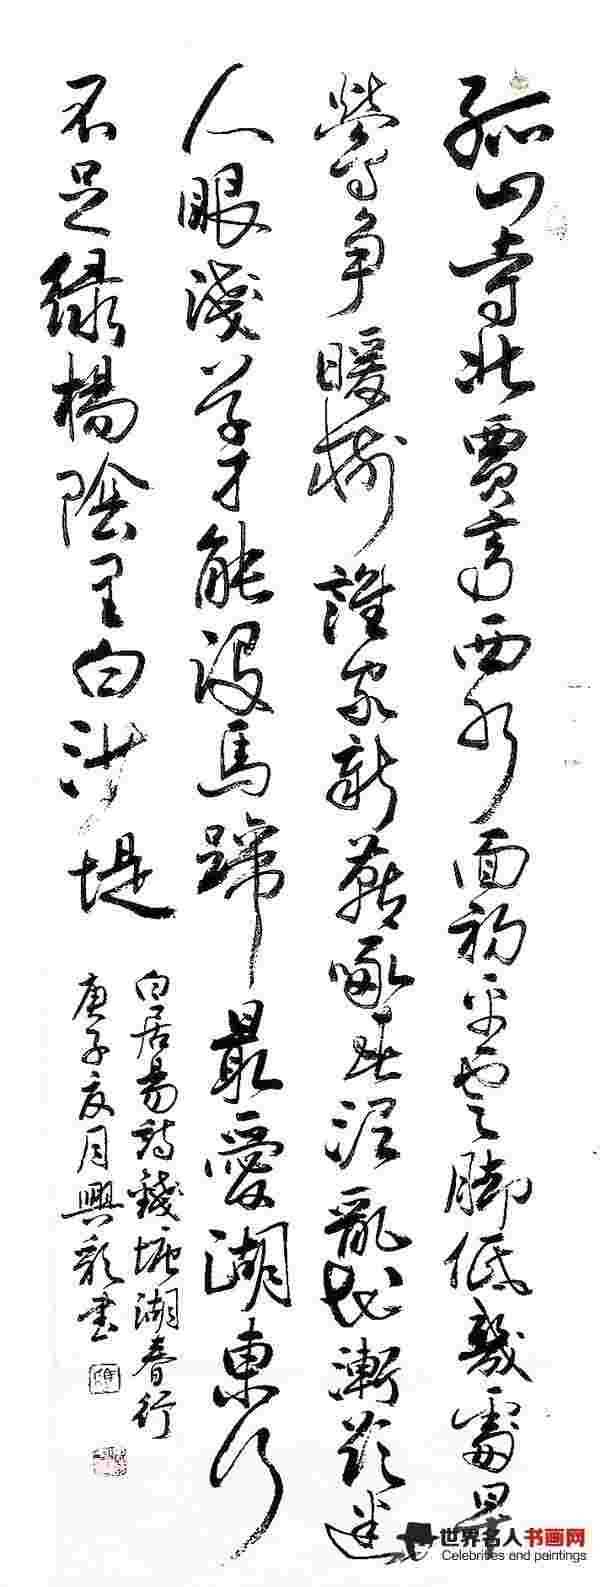 孤山寺北賈亭西水面初平雲脚低幾處早
鶯争暖樹誰家新燕啄春泥亂花漸欲迷
人眼淺草才能沒馬蹄最愛湖東行
不足綠楊陰里白沙堤
白居易詩錢塘湖春行
庚子亥月興彩書
世界名人书画网
Celebrities and paintings